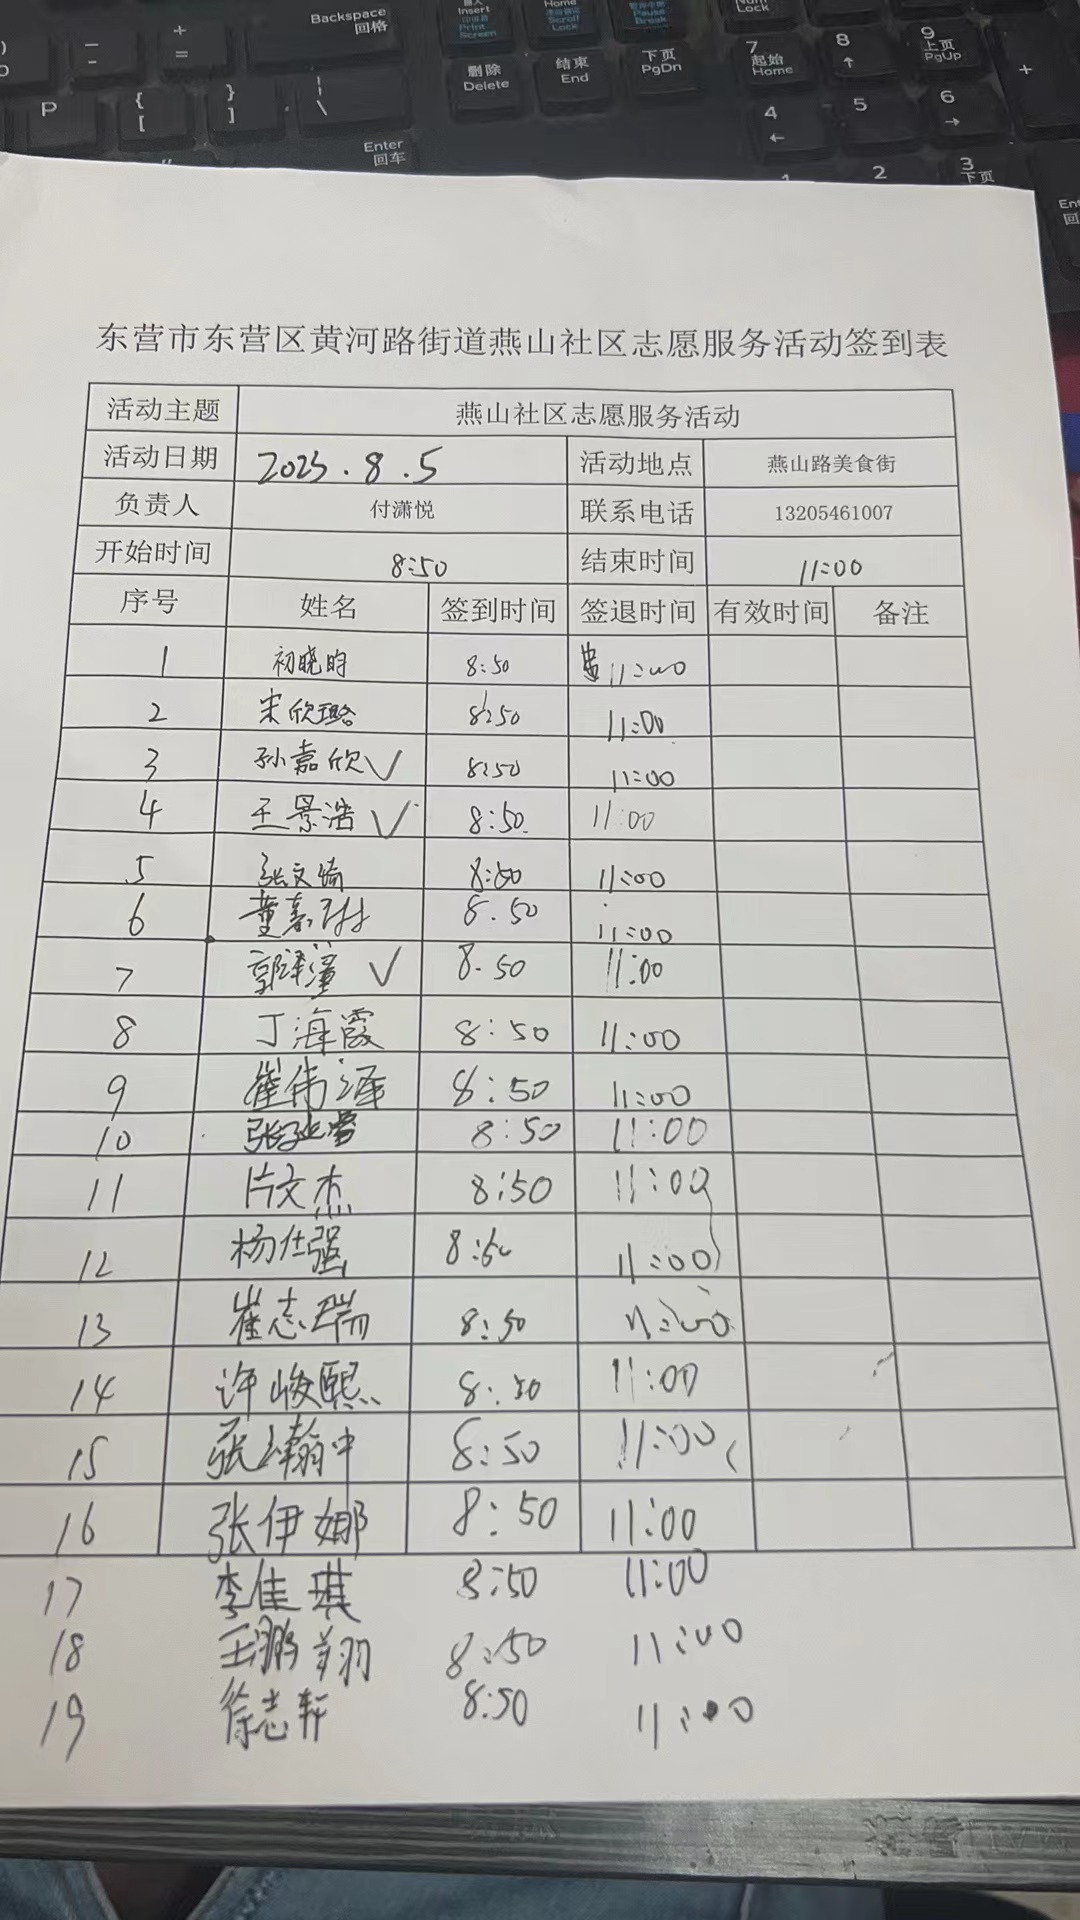 Backspace 回格
Insert
Print Screen
Home
Scroll Lock
Pause Break
Num Lock
删除 Delete
结束 End
下页 PgDn
7 起始 Home
8
9 上页 PgUp
+
P
{ [
} ]
| \
4
5
6
Enter 回车
2
3 下页
东营市东营区黄河路街道燕山社区志愿服务活动签到表
活动主题 燕山社区志愿服务活动
活动日期 2025.8.5 活动地点 燕山路美食街
负责人 付潇悦 联系电话 13205461007
开始时间 8:50 结束时间 11:00
序号 姓名 签到时间 签退时间 有效时间 备注
1 初晓昀 8:50 11:00
2 宋欣璐 8:50 11:00
3 孙嘉欣 ✓ 8:50 11:00
4 王景浩 ✓ 8:50 11:00
5 张文琦 8:50 11:00
6 董嘉 8.50 11:00
7 郭泽潼 ✓ 8.50 11:00
8 丁海霞 8:50 11:00
9 崔伟泽 8:50 11:00
10 张 8:50 11:00
11 片文杰 8:50 11:00
12 杨仕强 8:50 11:00
13 崔志瑞 8:50 11:00
14 许峻熙 8:50 11:00
15 张瀚中 8:50 11:00
16 张伊娜 8:50 11:00
17 李佳琪 8:50 11:00
18 王鹏翔 8:50 11:00
19 徐志轩 8:50 11:00